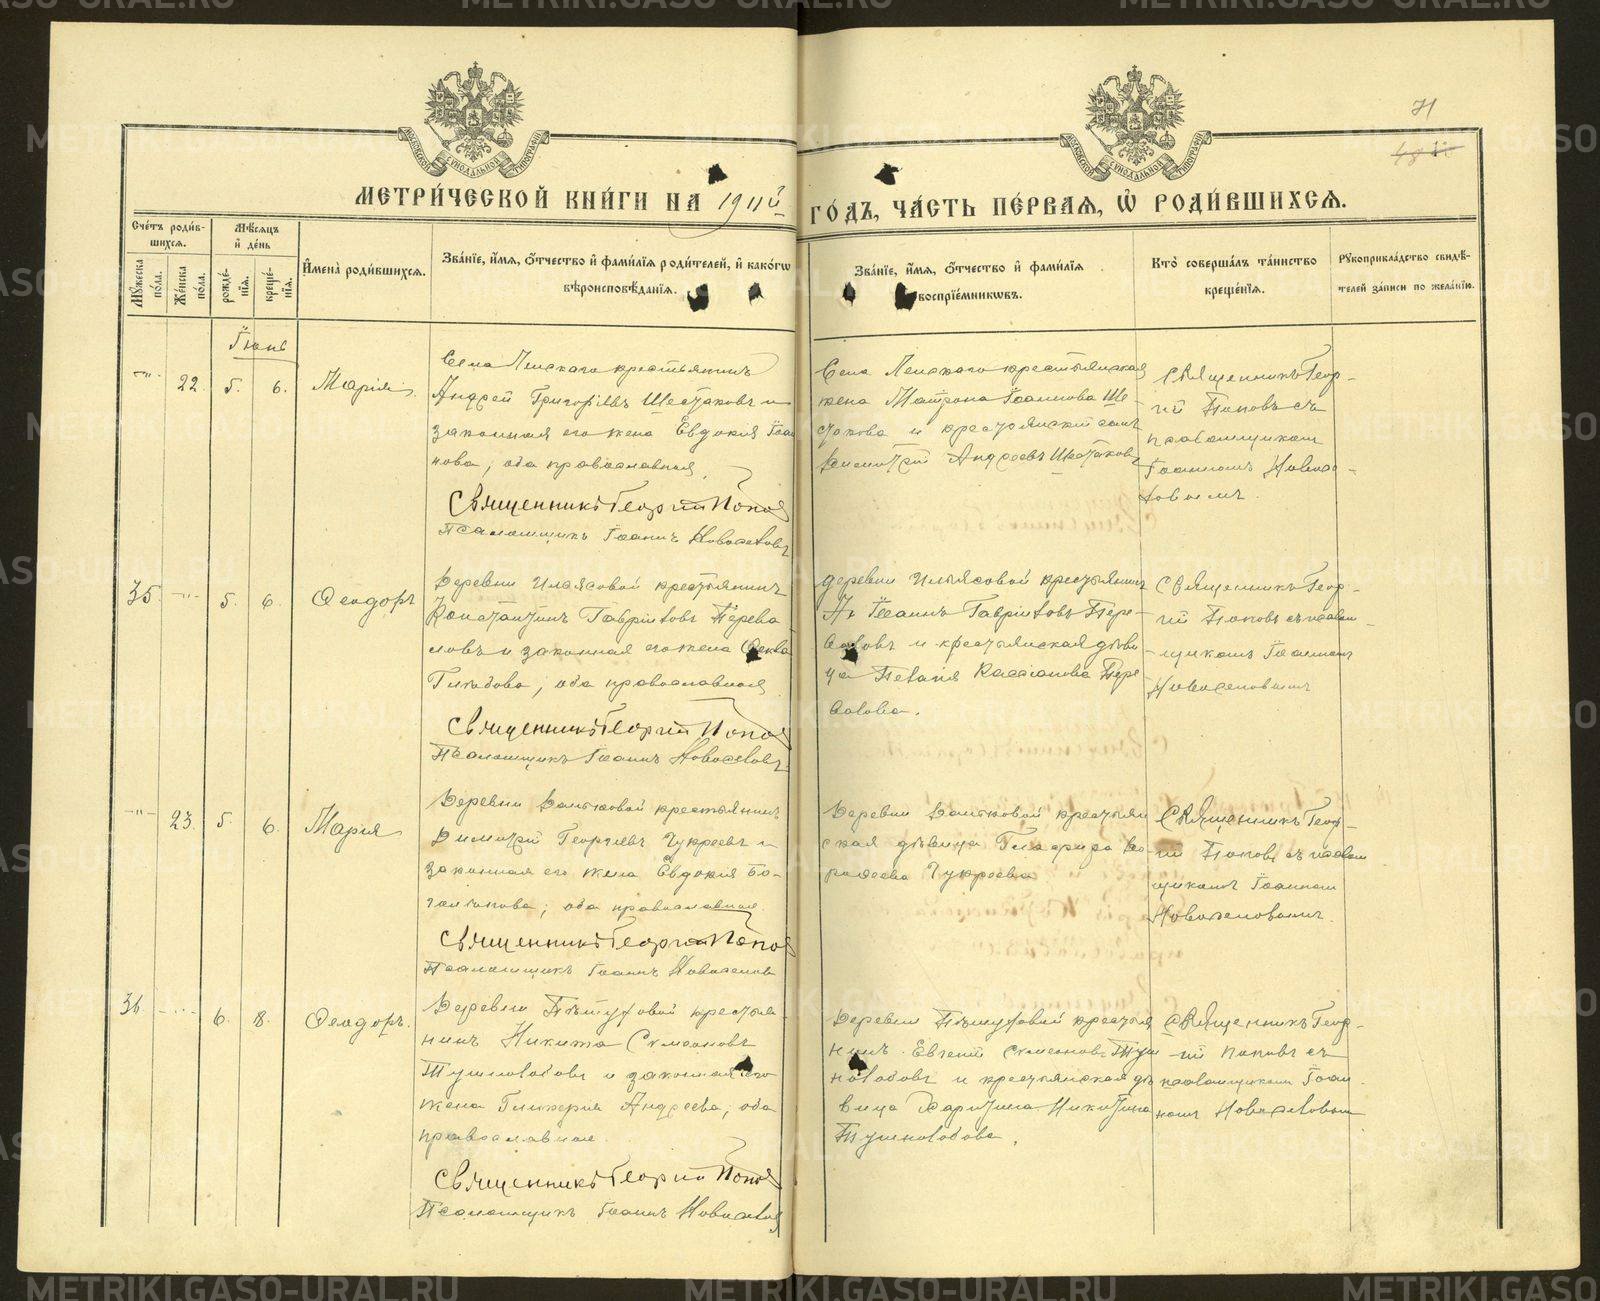 71
МЕТРИ́ЧЕСКОЙ КНИ́ГИ НА 1911й ГО́ДЪ, ЧА́СТЬ ПЕ́РВАЯ, Ѡ҆ РОДИ́ВШИХСЯ.
Сче́тъ роди́в-
шихся.
Мꙋ́жеска по́ла.
Же́нска по́ла.
Мѣ́сяцъ
и҆ де́нь
рожде́-
нїя.
креще́-
нїя.
И҆мена̀ роди́вшихся.
Зва́нїе, и҆́мя, ѻ҆́тчество и҆ фами́лїя роди́телей, и҆ како́гѡ
вѣроисповѣ́данїя.
Зва́нїе, и҆́мя, ѻ҆́тчество и҆ фами́лїя
воспрїе́мникѡвъ.
Кто̀ соверша́лъ та́инство
креще́нїя.
Рꙋкоприкла́дство свидѣ́-
телей за́писи по жела́нїю.
Іюнь
-"- 22. 5. 6. Мария.
Села Ленскаго крестьянинъ
Андрей Григоріевъ Шестаковъ и
законная его жена Евдокія Іоан
нова, оба православныя
Священникъ Георгій Попов
Псаломщикъ Іоаннъ Новоселовъ
Села Ленскаго крестьянская
жена Матрона Іоаннова Ше-
стакова и крестьянскій сынъ
Димитрій Андреевъ Шестаковъ
Священникъ Геор-
гій Поповъ съ
псаломщикомъ
Іоанномъ Новосе-
ловымъ.
35. -"- 5. 6. Феодоръ
Деревни Ильясовой крестьянинъ
Константинъ Гавріиловъ Перева-
ловъ и законная его жена Фекла
Глебова, оба православныя
Священникъ Георгій Попов
Псаломщикъ Іоаннъ Новоселовъ
деревни Ильясовой крестьянинъ
Іоаннъ Гавріиловъ Пере-
валовъ и крестьянская дѣви-
ца Кассіанова Пере
валова.
Священникъ Геор-
гій Поповъ съ псалом-
щикомъ Іоанномъ
Новоселовымъ
-"- 23. 5. 6. Мария
Деревни крестьянинъ
Димитрій Георгіевъ Чукреевъ и
законная его жена Евдокія
оба православные.
Священникъ Георгій Попов
Псаломщикъ Іоаннъ Новоселов
Деревни крестьян
ская дѣвица Глафира
Чукреева
Священникъ Геор-
гій Поповъ съ псалом
щикомъ Іоанномъ
Новоселовымъ.
36. -"- 6. 8. Феодоръ.
Деревни Пѣтуховой крестья-
нинъ Никита Симеоновъ
Тушнолобовъ и законная его
жена Гликерия Андреева, оба
православные.
Священникъ Георгій Попов
Псаломщикъ Іоаннъ Новоселов
Деревни Пѣтуховой крестья
нинъ Евгеній Симеоновъ Туш
нолобовъ и крестьянская дѣ
вица Харитина Никитина
Тушнолобова.
Священникъ Геор-
гій Поповъ съ
псаломщикомъ Іоан-
номъ Новоселовым
METRIKI.GASO-URAL.RU